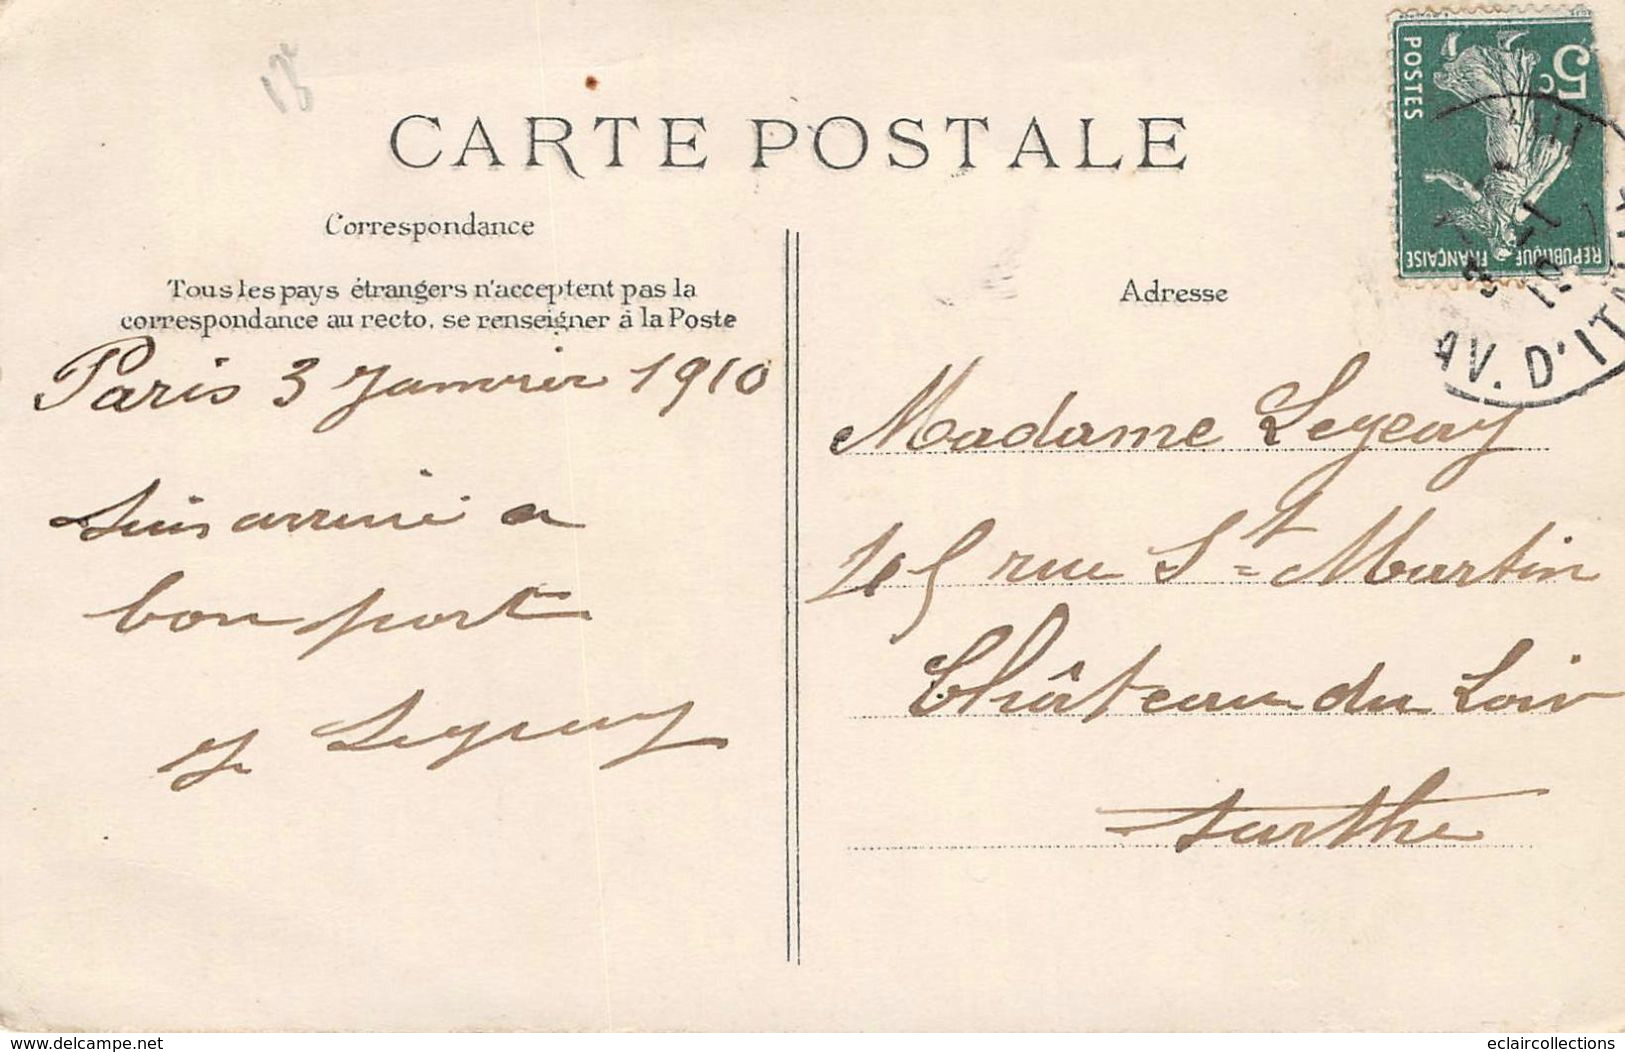 18
CARTE POSTALE
Correspondance
Tous les pays étrangers n'acceptent pas la
correspondance au recto, se renseigner à la Poste
Paris 3 Janvier 1910
suis arrivé a
bon port
J Legeay
Adresse
Madame Legeay
45 rue St Martin
Château du Loir
Sarthe
5c
POSTES
REPUBLIQUE FRANÇAISE
AV. D'IT
www.delcampe.net
eclaircollections